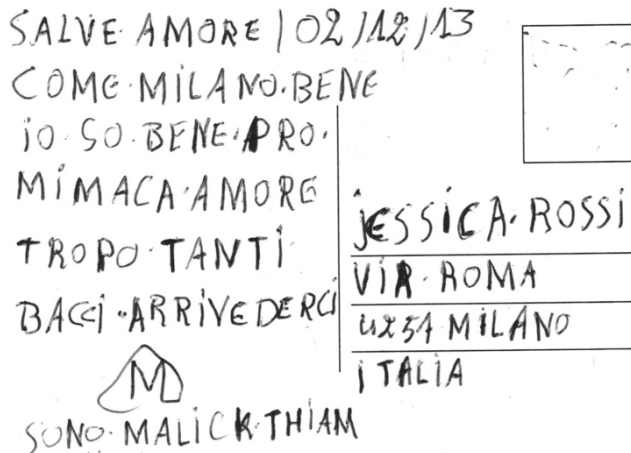 SALVE AMORE | 02/12/13
COME·MILANO·BENE
iO·SO·BENE·PRO·
MiMACA·AMORE
TROPO·TANTi
BACCi·ARRiVEDERCi
M
SONO·MALiCK·THiAM
jESSiCA·ROSSi
ViA·ROMA
4251 MiLANO
iTALiA